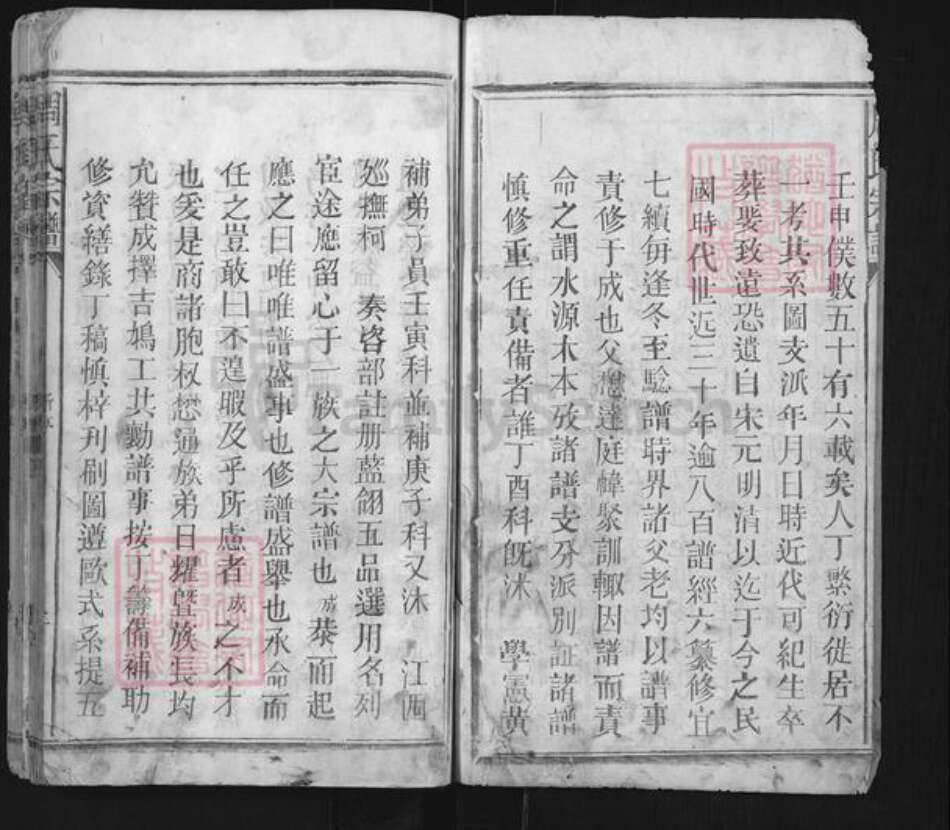 壬申僕數五十有六載矣人丁繁衍徙居不
一考其系圖支派年月日時近代可紀生卒
葬娶致遠恐遺自宋元明清以迄于今之民
國時代世近三十年逾八百譜經六纂修宜
七續毎逢冬至驗譜時界諸父老均以譜事
責修于成也父想達庭幃聚訓輙因譜而責
命之謂水源木本攷諸譜支分派別証諸譜
慎修重任責備者誰丁酉科旣沐 學憲黃
補弟子員壬寅科並補庚子科又沐 江西
廵撫柯 奏咨部註册藍翎五品選用名列
宦途應留心于一族之大宗譜也成恭而起
應之曰唯唯譜盛事也修譜盛舉也承命而
任之豈敢曰不遑暇及乎所慮者成之不才
也爰是商諸胞叔懋通族弟日耀暨族長均
允贊成擇吉鳩工共勷譜事按丁籌備補助
修資繕錄丁稿慎梓刋刷圖遵歐式系提五
周氏宗譜
FamilySearch